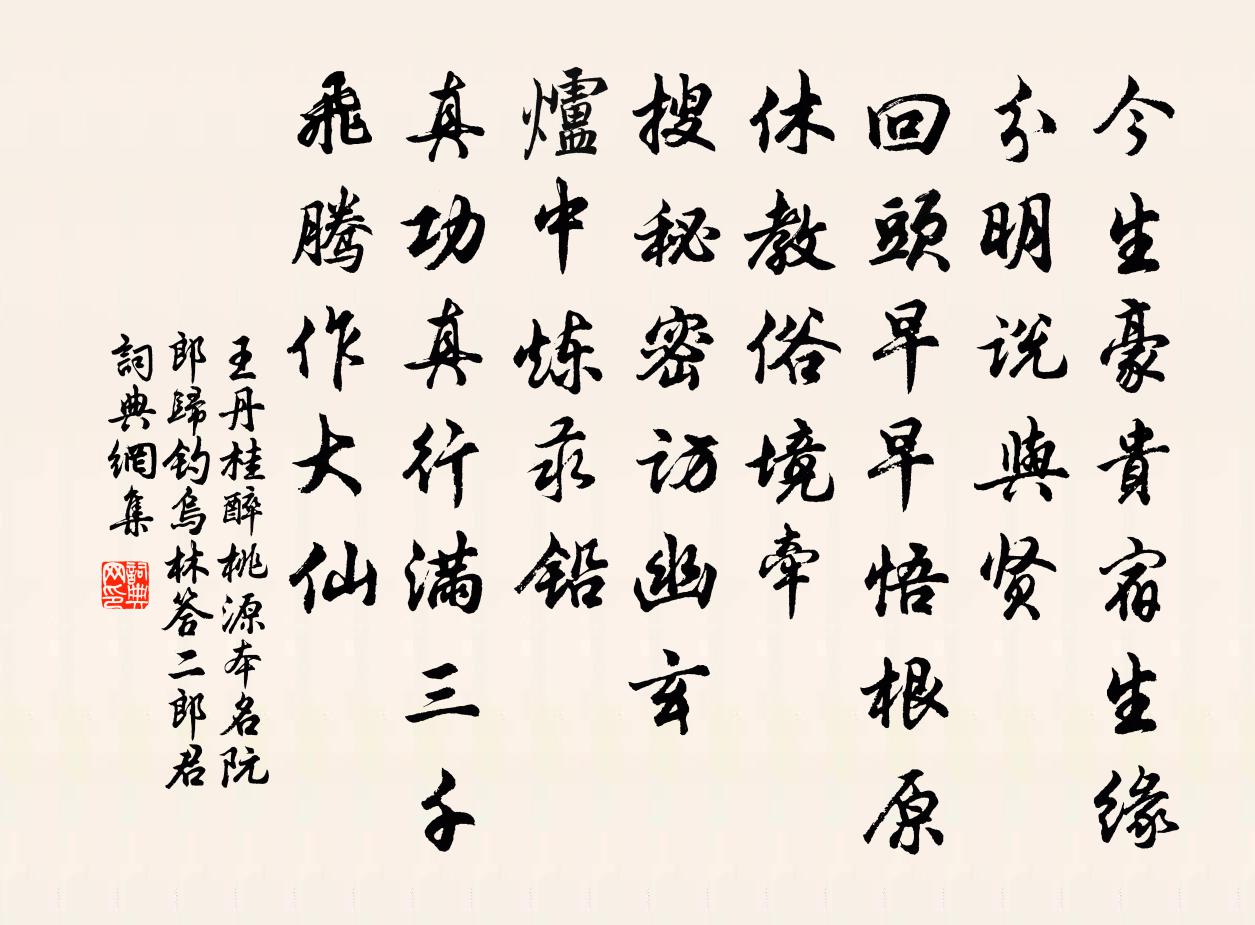 今生豪貴宿生緣
分明説與贤
回頭早早悟根原
休教俗境牽
搜秘密訪幽玄
爐中炼汞鉛
真功真行满三千
飛騰作大仙
王丹桂醉桃源本名阮
郎歸钓烏林答二郎君
詞典網集
詞典网印